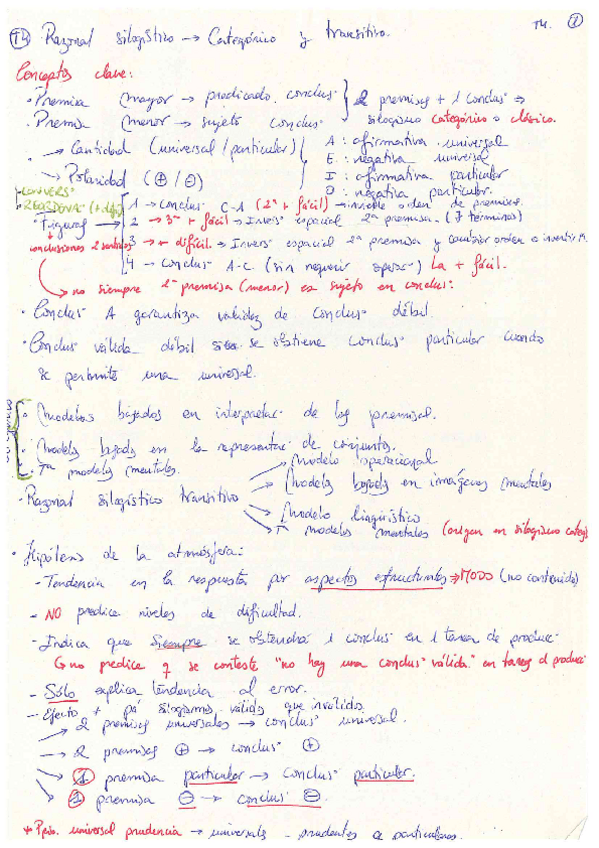 T4. 1
T4 Razonat silogístico → Categórico y transitivo.
Conceptos clave:
· Premisa mayor → predicado conclus } 2 premisas + 1 conclus ⇒
· Premisa menor → sujeto conclus } silogismo categórico o clásico.
· → Cantidad (universal / particular) { A: afirmativa universal
E: negativa universal
→ Polaridad (⊕ / ⊖) I: afirmativa particular
O: negativa particular.
- CONVERS°
- REORDENA°
· Figuras → 1 → Conclus° C-A (2ª + fácil) → invierte orden de premisas.
2 → 3ª + fácil → Invers° espacial 2ª premisa. (7 términos)
conclusiones 2 sentidos 3 → + difícil → Invers° espacial 2ª premisa y cambiar orden o invertir M.
4 → conclus° A-C (sin requerir operac°) La + fácil.
→ no siempre 2ª premisa (menor) es sujeto en conclus°
· Conclus° A garantiza validez de conclus° débil.
· Conclus° válida débil se obtiene conclus° particular cuando
se permite una universal.
· Modelos basados en interpretac° de las premisas.
· Modelos basados en la representac° de conjuntos.
· Tª modelos mentales.
→ Modelo operacional
· Razonat silogístico transitivo → Modelos basados en imágenes mentales
→ Modelo lingüístico
→ Tª modelos mentales (origen en silogismo categ)
· Hipótesis de la atmósfera:
- Tendencia en la respuesta por aspectos estructurales ⇒ MODO (no contenido)
- NO predice niveles de dificultad.
- Indica que siempre se obtendrá 1 conclus° en 1 tarea de produc°
↳ no predice q se conteste "no hay una conclus° válida" en tareas d produc°
- Sólo explica tendencia al error.
- Efecto + pa' silogismos válidos que inválidos.
→ 2 premisas universales → conclus° universal.
→ 2 premisas ⊕ → conclus° ⊕
→ 1 premisa particular → conclus° particular.
→ 1 premisa ⊖ → conclus° ⊖.
* Ppio. universal prudencia → universales - prudentes q particulares.